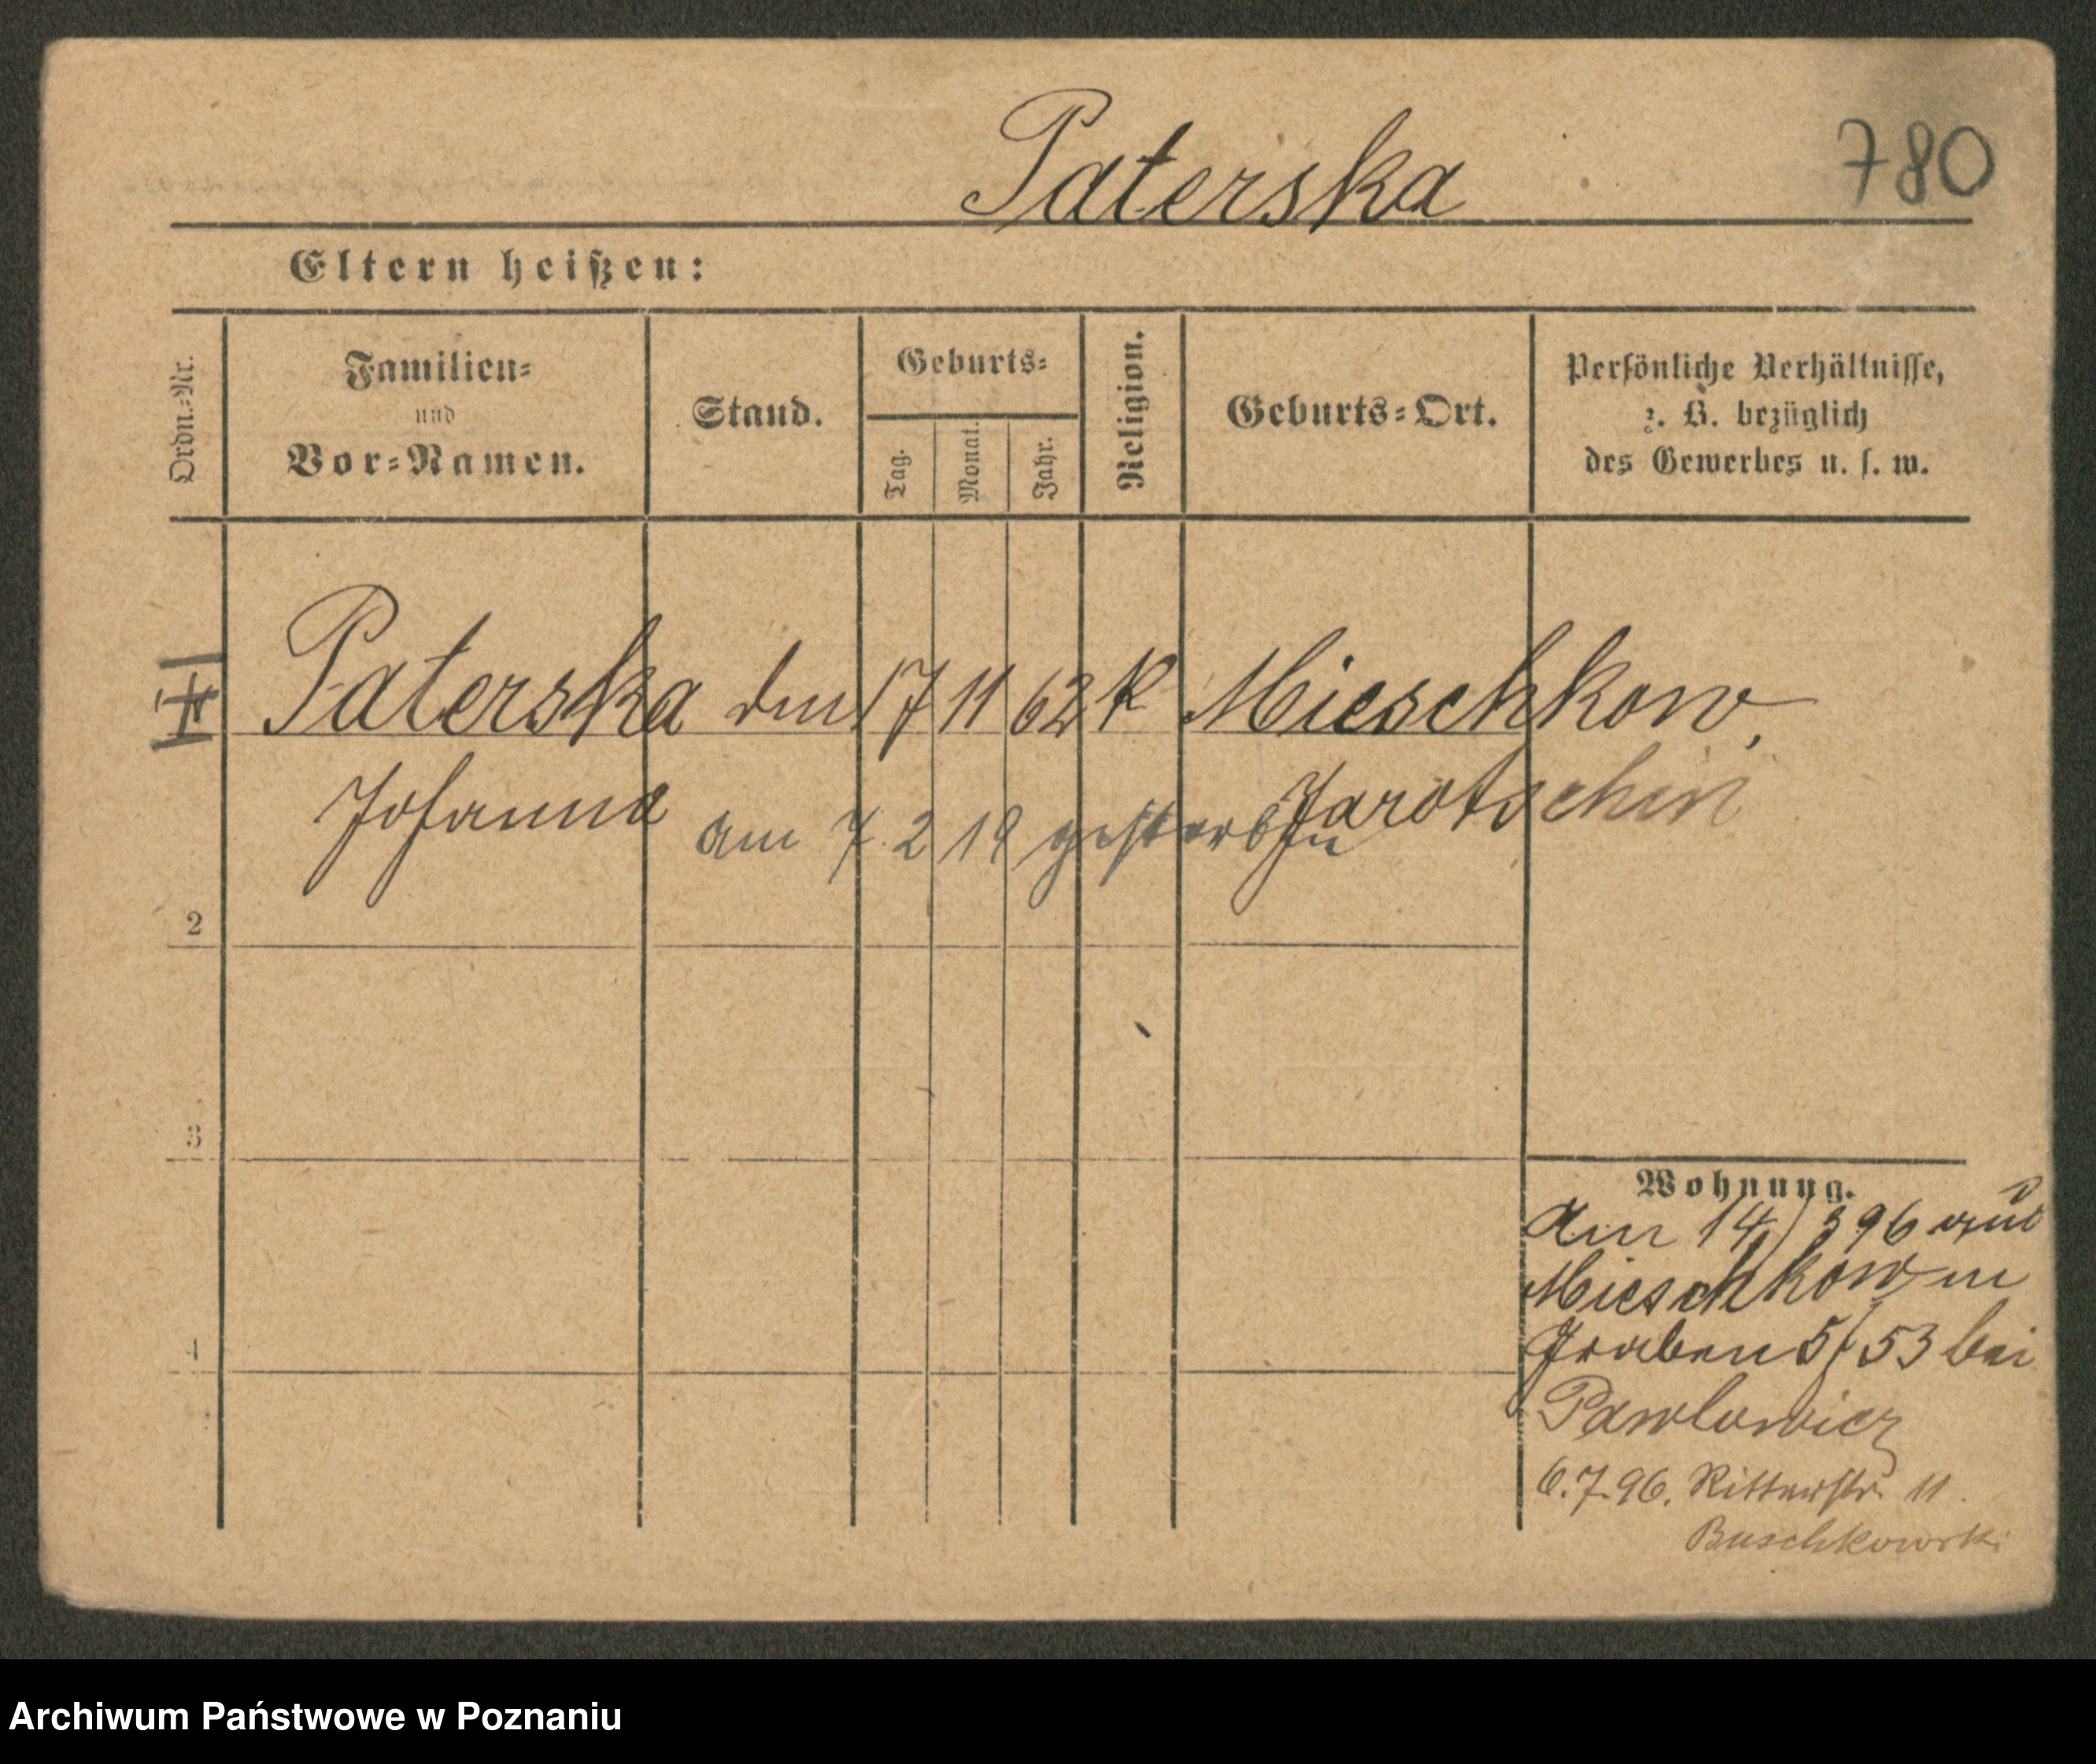 Paterska
780
Eltern heißen:
Ordn.-Nr.
Familien-
und
Vor-Namen.
Stand.
Geburts-
Tag.
Monat.
Jahr.
Religion.
Geburts-Ort.
Persönliche Verhältnisse,
z. B. bezüglich
des Gewerbes u. s. w.
Paterska 17 11 62 K Mieschkow,
Johanna Jarotschin
am 7. 2 19 gestorben
2
3
4
Wohnung.
Am 14/3 96 aus
Mieschkow in
Graben 5/53 bei
Pawlowicz
6.7.96. Ritterstr. 11.
Buschkowski
Archiwum Państwowe w Poznaniu